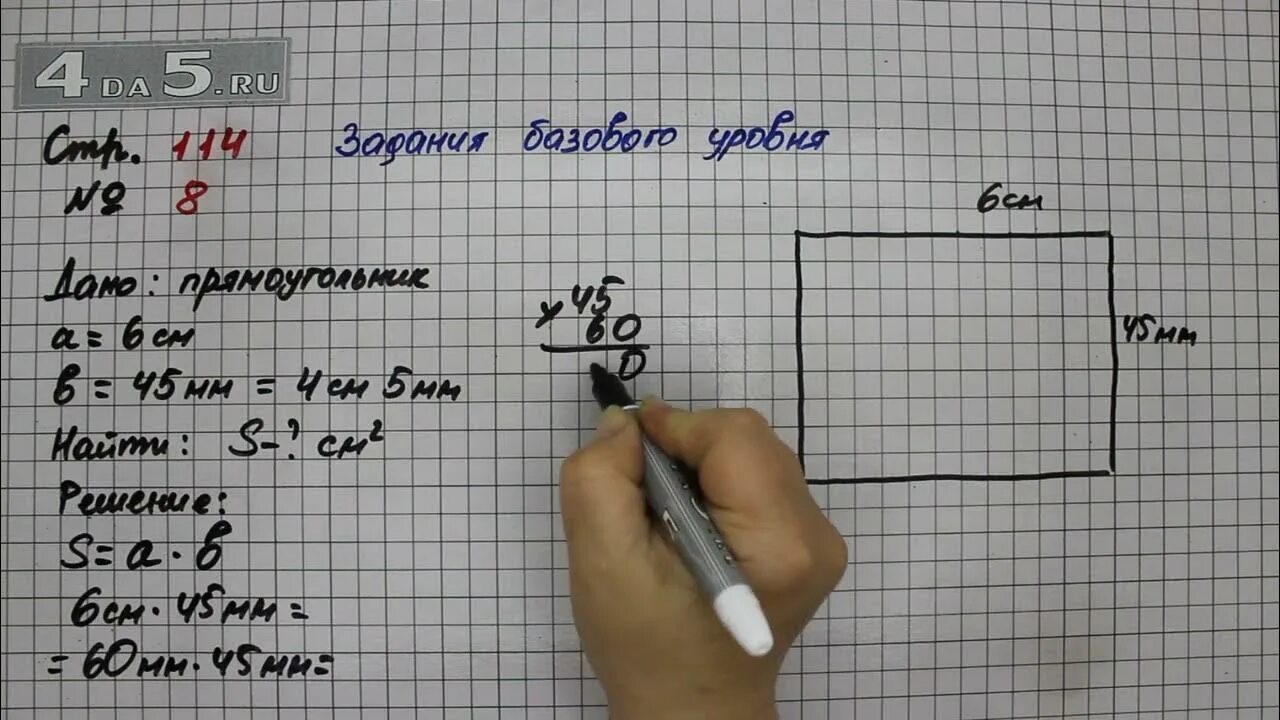 4DA5.RU
Стр. 114 Задания базового уровня
№ 8
6см
Дано: прямоугольник
а = 6 см
в = 45 мм = 4 см 5 мм
Найти: S-? см²
Решение:
S = а · в
6 см · 45 мм =
= 60 мм · 45 мм =
× 45
60
0
45 мм